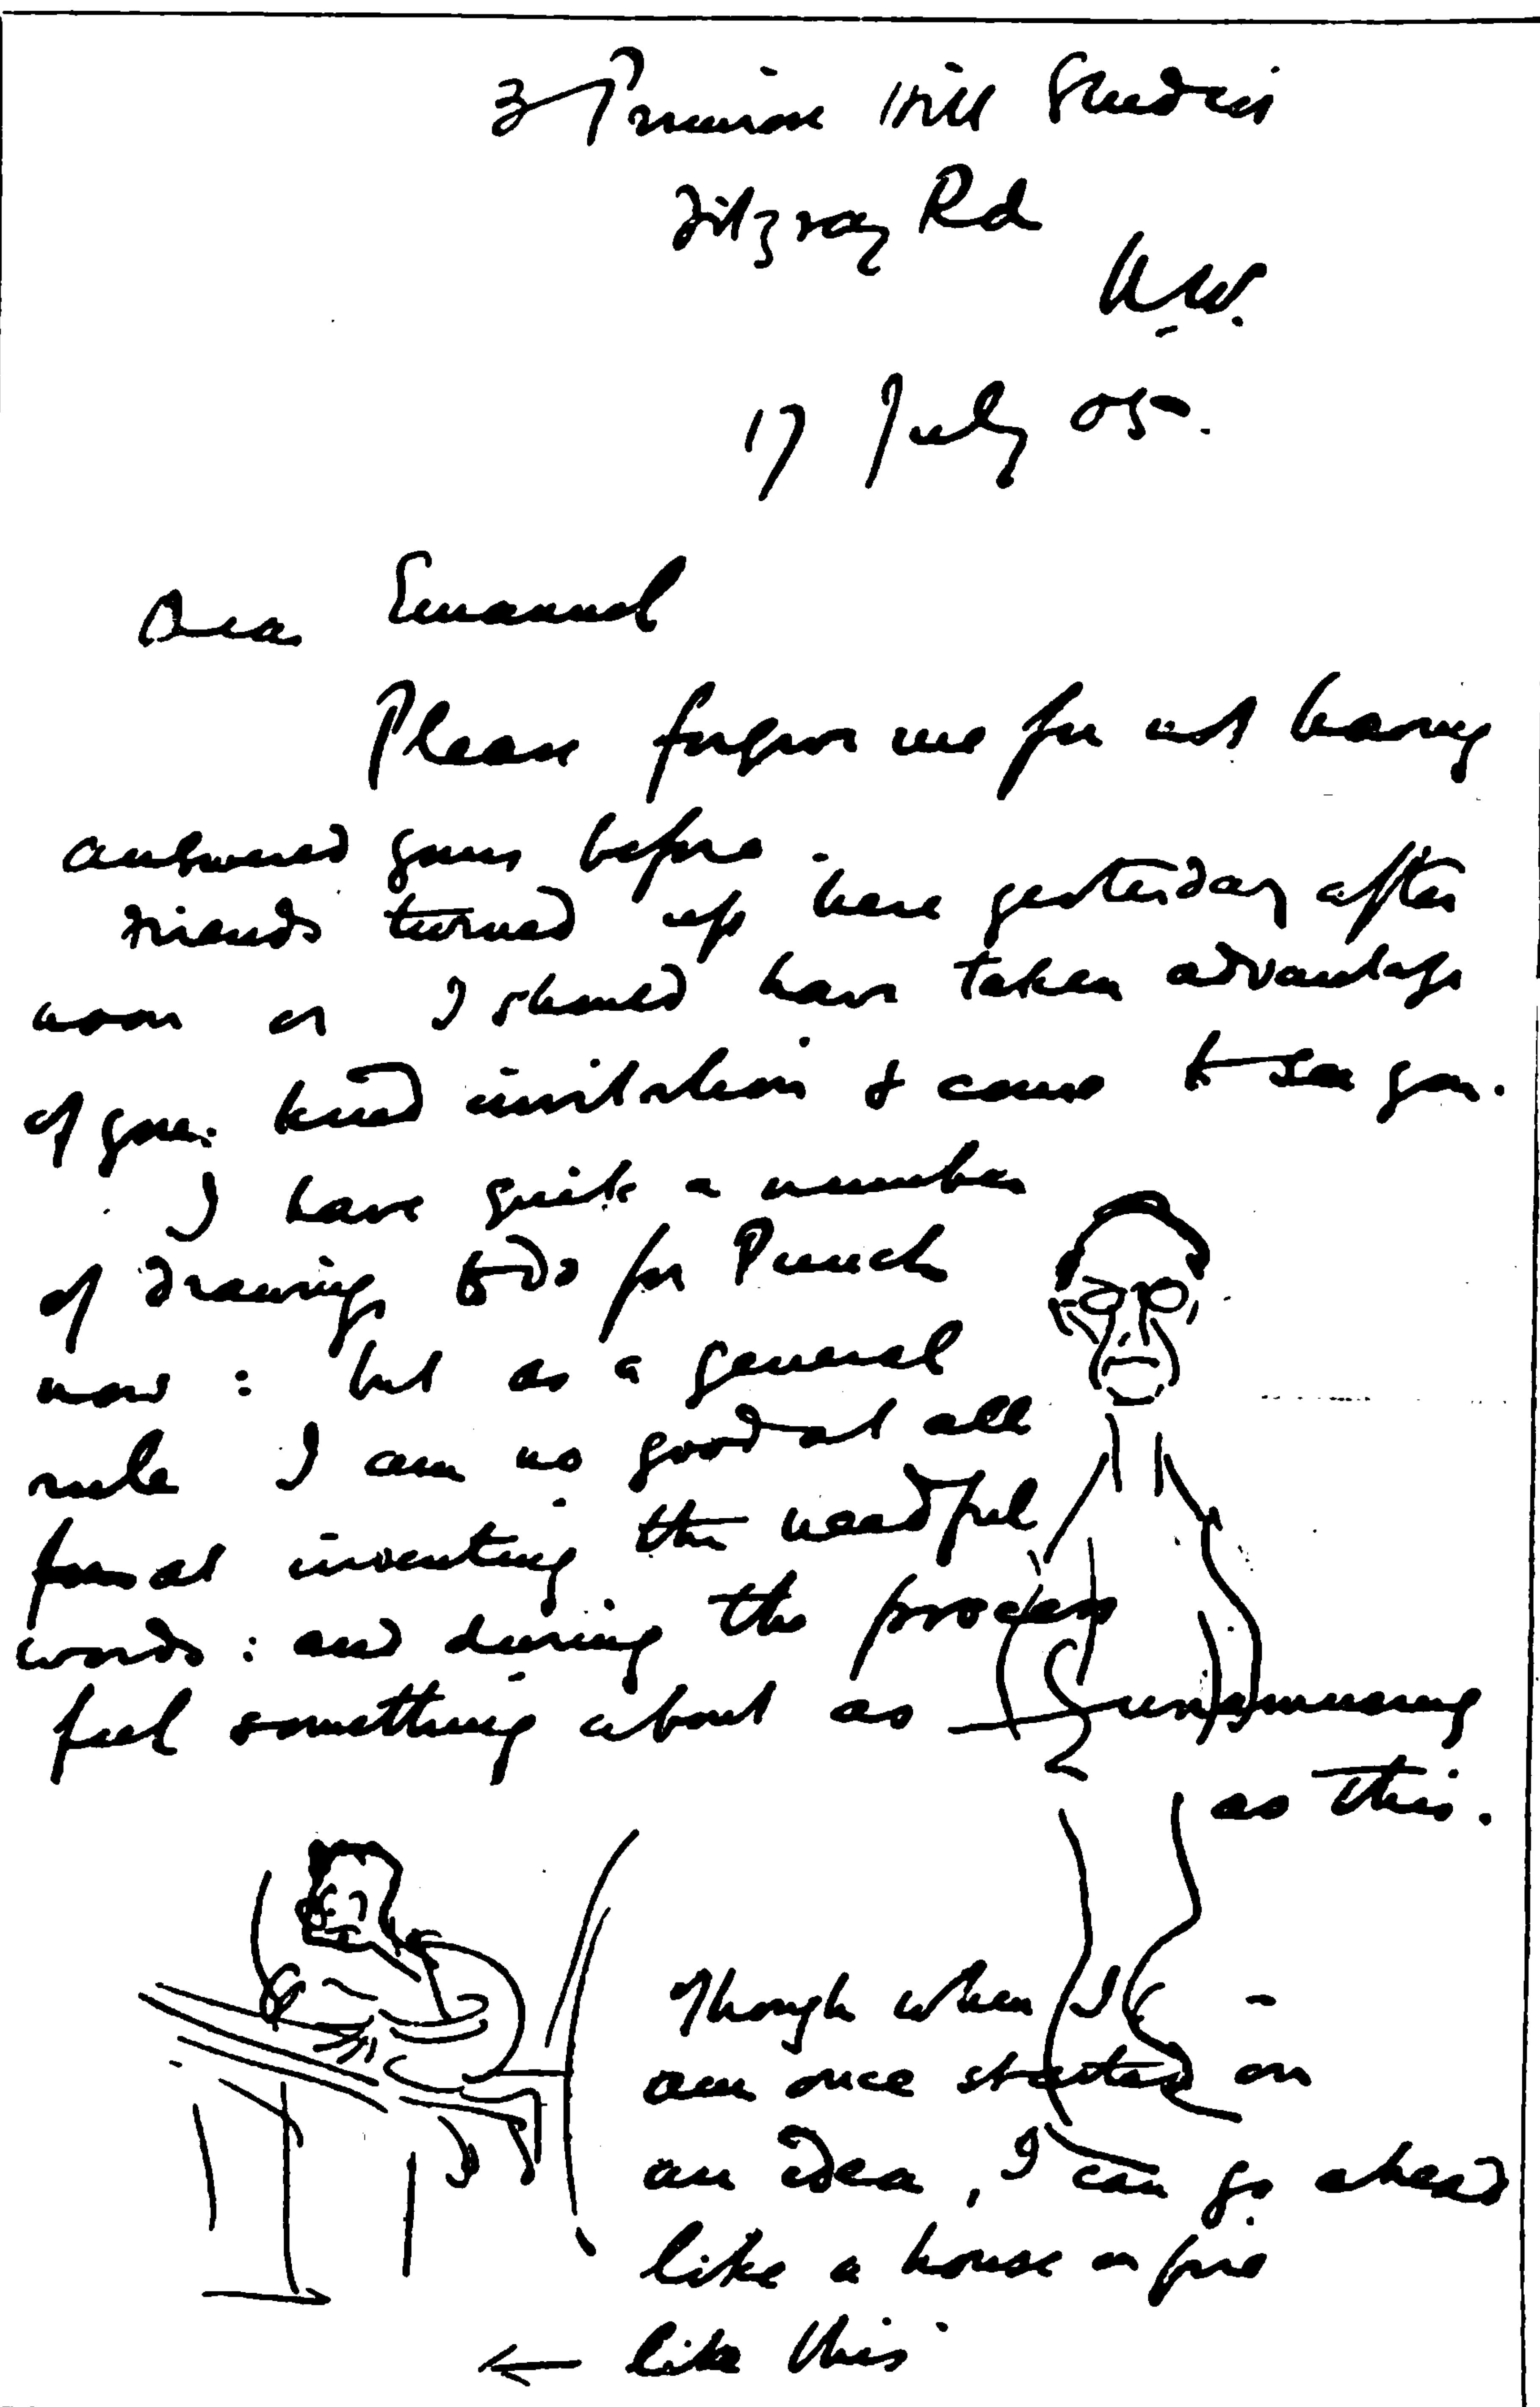 3 Primrose Hill Studios
Fitzroy Rd
N.W.
17 July 05.
Dear Emanuel
Please forgive me for not having
answered yours before.
Friends turned up here yesterday after
noon or I should have taken advantage
of your kind invitation & come to see you.
I have quite a number
of drawings to do for Punch
now : but as a general
rule I am no good at all
at inventing the needful
words : and during the process
feel something about as unamusing
as this.
Though when I
am once started on
an idea, I can go ahead
like a house on fire
← like this